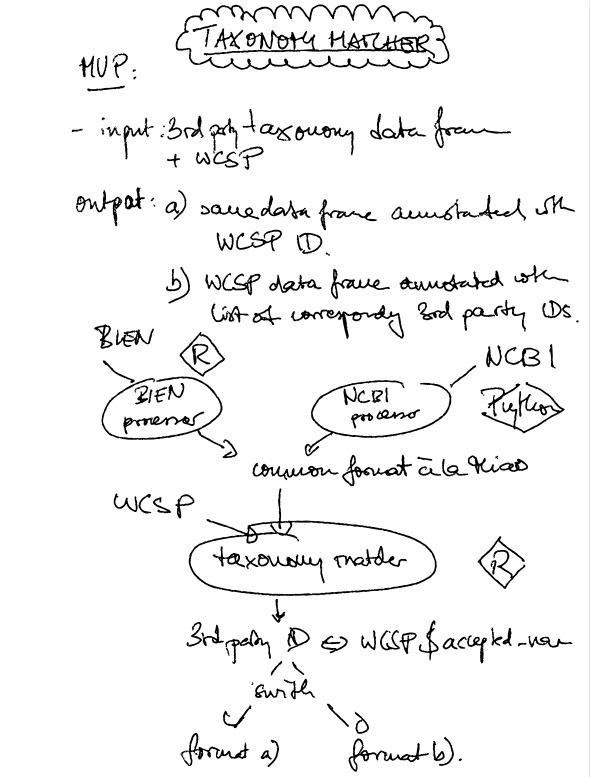 TAXONOMY MATCHER
MVP:
- input: 3rd party taxonomy data frame
+ WCSP
output: a) same data frame annotated with
WCSP ID.
b) WCSP data frame annotated with
list of corresponding 3rd party IDs.
BIEN
R
NCBI
BIEN
processor
NCBI
processor
Python
common format à la
WCSP
taxonomy matcher
R
3rd party ID ⇔ WCSP $ accepted_
switch
format a) format b).